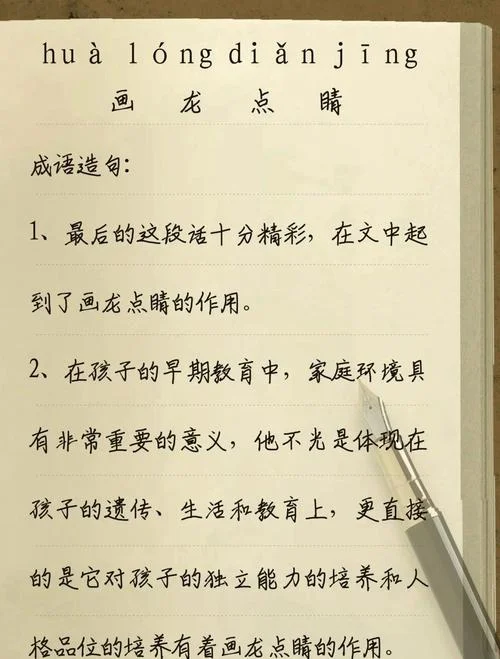 huà lóng diǎn jīng
画 龙 点 睛
成语造句：
1、最后的这段话十分精彩，在文中起
到了画龙点睛的作用。
2、在孩子的早期教育中，家庭环境具
有非常重要的意义，他不光是体现在
孩子的遗传、生活和教育上，更直接
的是它对孩子的独立能力的培养和人
格品位的培养有着画龙点睛的作用。